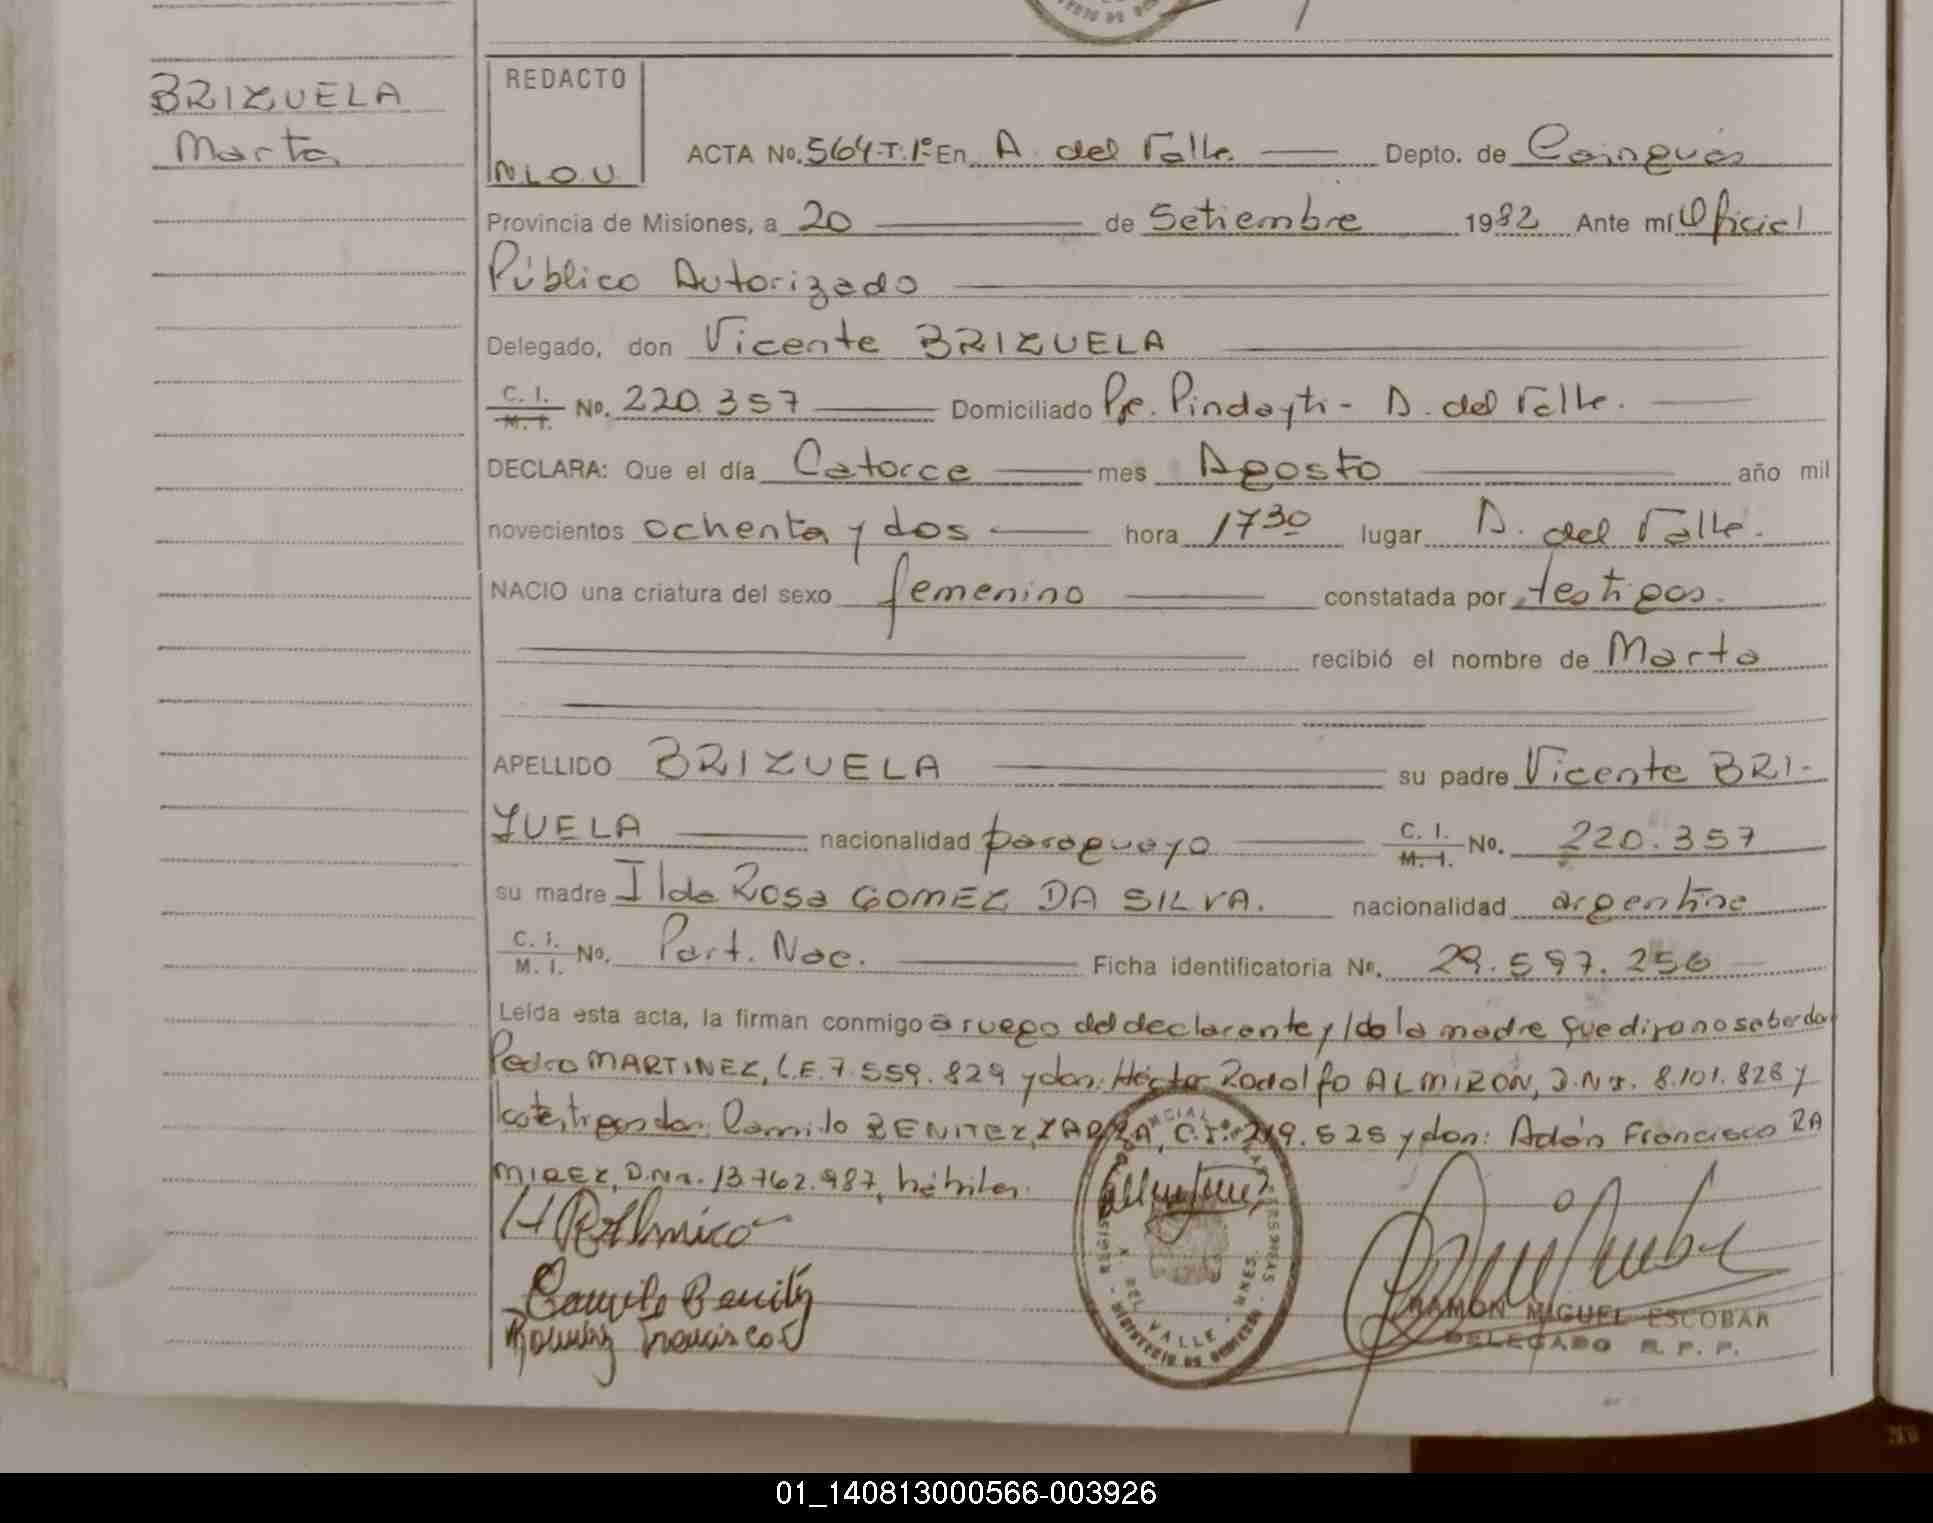 BRIZUELA
Marta
REDACTO
N.L.O.U.
ACTA No. 564-T.1º En A. del Valle Depto. de Cainguás
Provincia de Misiones, a 20 de Setiembre 1982 Ante mí Oficial
Público Autorizado
Delegado, don Vicente BRIZUELA
C. I. M. I. No. 220.357 Domiciliado Pje. Pindayti - A. del Valle.
DECLARA: Que el día Catorce mes Agosto año mil
novecientos ochenta y dos hora 1730 lugar A. del Valle.
NACIO una criatura del sexo femenino constatada por testigos.
recibió el nombre de Marta
APELLIDO BRIZUELA su padre Vicente BRI-
ZUELA nacionalidad paraguayo C. I. M. I. No. 220.357
su madre Ilda Rosa GOMEZ DA SILVA. nacionalidad argentina
C. I. M. I. No. Part. Nac. Ficha identificatoria No. 29.597.256
Leída esta acta, la firman conmigo a ruego del declarante y/do la madre que dijo no saber don
Pedro MARTINEZ, L.E. 7.559.829 y don: Héctor Rodolfo ALMIRON, D.N.I. 8.101.828 y
testigos don: Camilo BENITEZ C.I. 219.525 y don: Adán Francisco RA
MIREZ, D.N.I. 13.762.987, hábiles.
Camilo Benitez
Francisco
DEL VALLE - MNES.
MINISTERIO DE GOBIERNO
RAMON MIGUEL ESCOBAR
DELEGADO R. P. P.
01_140813000566-003926